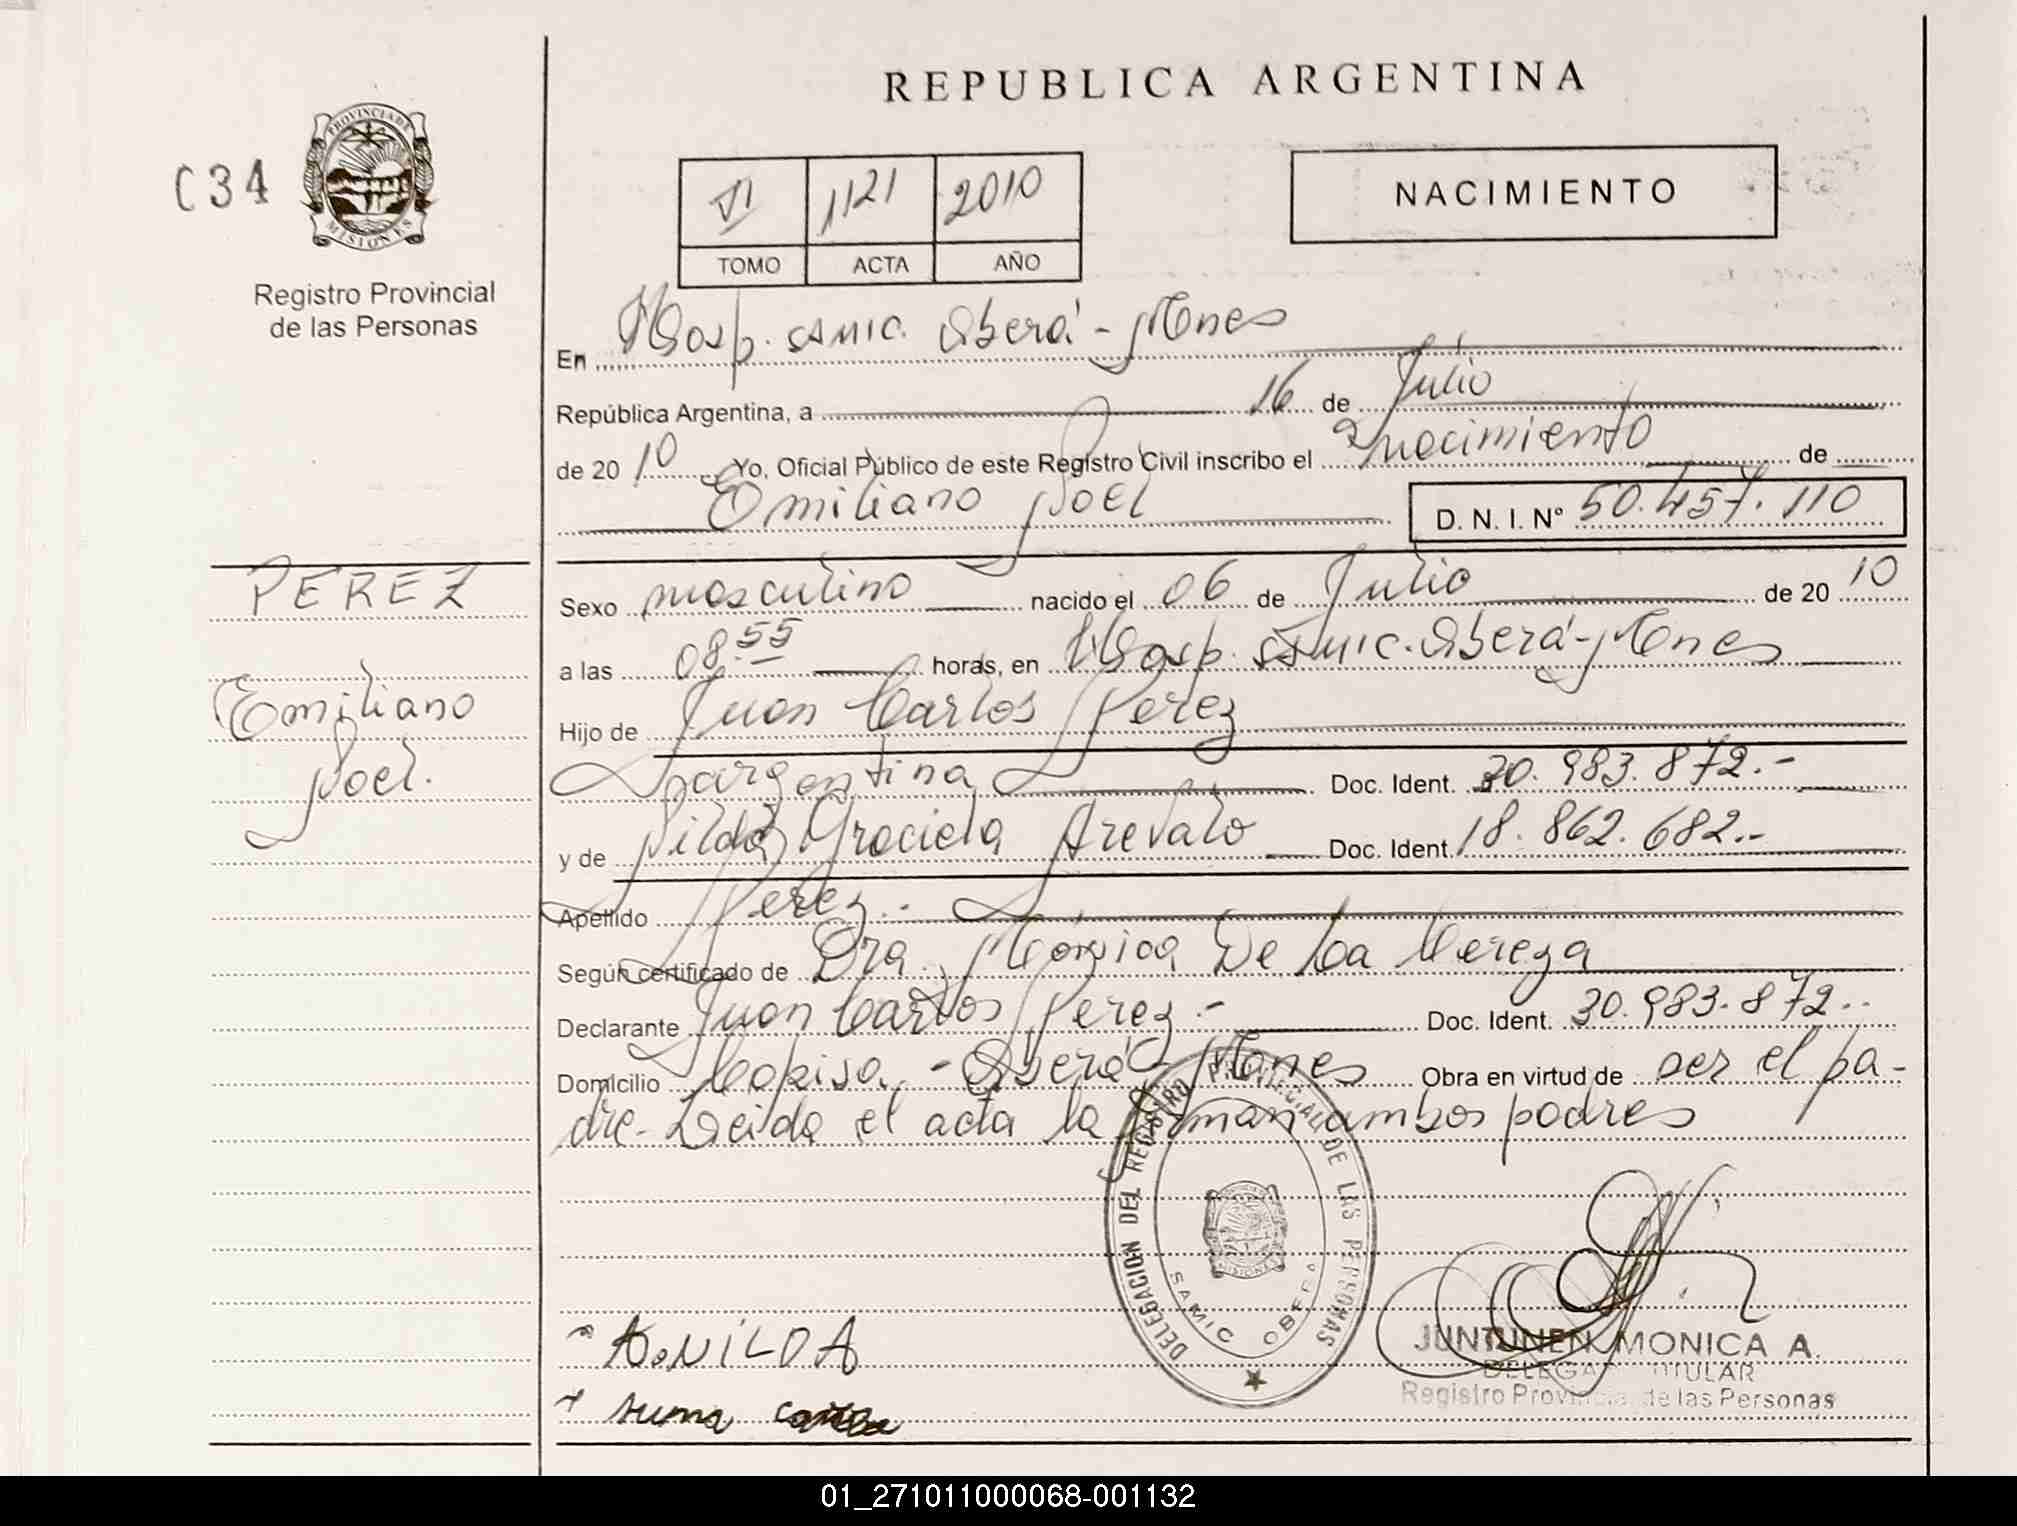 REPUBLICA ARGENTINA
C34
PROVINCIA DE
MISIONES
Registro Provincial
de las Personas
VI 1121 2010
TOMO ACTA AÑO
NACIMIENTO
En Hosp. SAMIC. Oberá - Mnes
República Argentina, a 16 de Julio
de 20 10 Yo, Oficial Público de este Registro Civil inscribo el nacimiento de
Emiliano Joel D. N. I. Nº 50.457.110
PEREZ
Emiliano
Joel.
Sexo masculino nacido el 06 de Julio de 20 10
a las 08.55 horas, en Hosp. SAMIC. Oberá - Mnes
Hijo de Juan Carlos Perez
argentina Doc. Ident. 30.983.872.-
y de Nilda Graciela Arevalo Doc. Ident. 18.862.682.-
Apellido Perez.-
Según certificado de Dra. Mónica De La
Declarante Juan Carlos Perez.- Doc. Ident. 30.983.872..
Domicilio - Oberá Mnes Obra en virtud de ser el pa-
dre- Leida el acta la firman ambos padres
DELEGACION DEL REGISTRO PROVINCIAL DE LAS PERSONAS
SAMIC OBERA
MISIONES
JUNTUNEN MONICA A.
DELEGADA TITULAR
Registro Provincial de las Personas
01_271011000068-001132